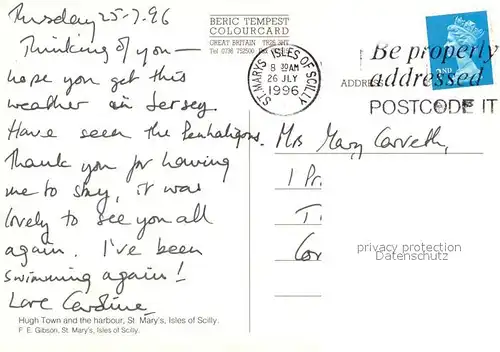 Thursday 25-7.96
Thinking of you –
hope you get this
weather in Jersey.
Have seen the Penhaligons.
Thank you for having
me to stay, it was
lovely to see you all
again. I've been
swimming again!
Love Caroline
Hugh Town and the harbour, St. Mary's, Isles of Scilly.
F. E. Gibson, St. Mary's, Isles of Scilly.
BERIC TEMPEST
COLOURCARD
GREAT BRITAIN
ST. MARYS ISLES OF SCILLY
8 30AM
26 JLY
1996
2ND
Be properly
addressed
POSTCODE IT
ADDRE
Mrs Mary Carveth,
1 Pr
T
Cor
privacy protection
Datenschutz